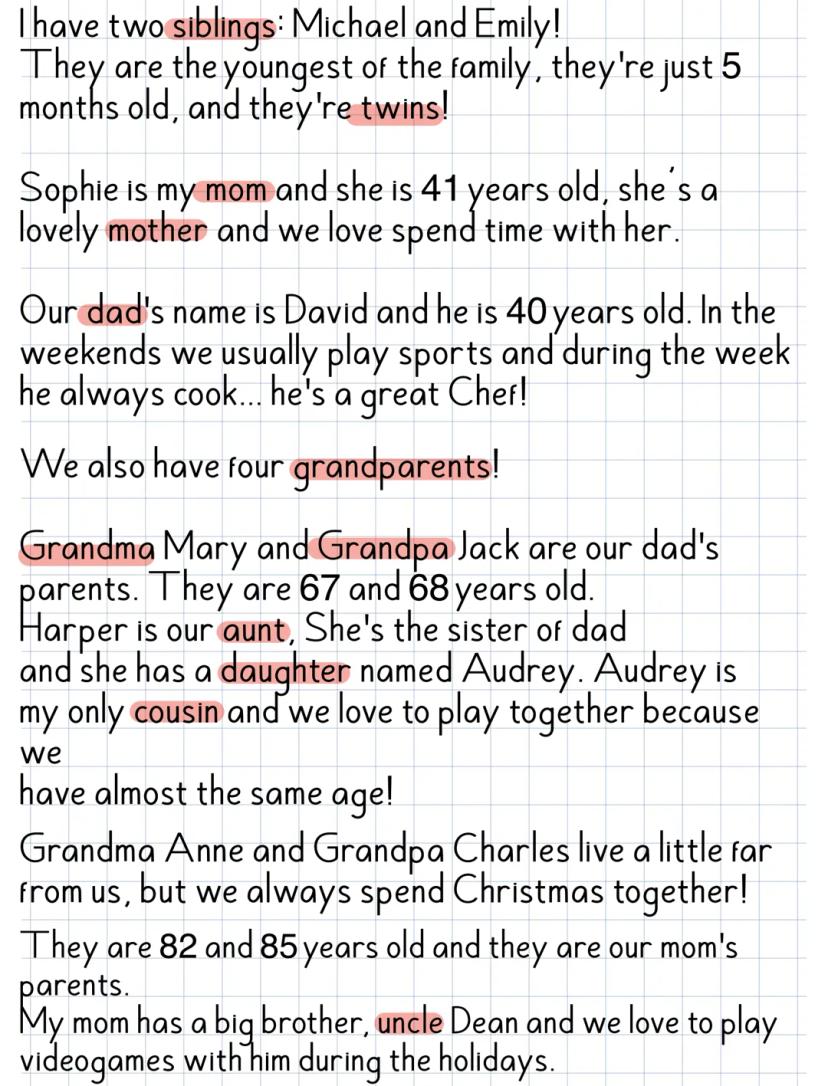 I have two siblings: Michael and Emily!
They are the youngest of the family, they're just 5
months old, and they're twins!
Sophie is my mom and she is 41 years old, she's a
lovely mother and we love spend time with her.
Our dad's name is David and he is 40 years old. In the
weekends we usually play sports and during the week
he always cook... he's a great Chef!
We also have four grandparents!
Grandma Mary and Grandpa Jack are our dad's
parents. They are 67 and 68 years old.
Harper is our aunt, She's the sister of dad
and she has a daughter named Audrey. Audrey is
my only cousin and we love to play together because
we
have almost the same age!
Grandma Anne and Grandpa Charles live a little far
from us, but we always spend Christmas together!
They are 82 and 85 years old and they are our mom's
parents.
My mom has a big brother, uncle Dean and we love to play
videogames with him during the holidays.